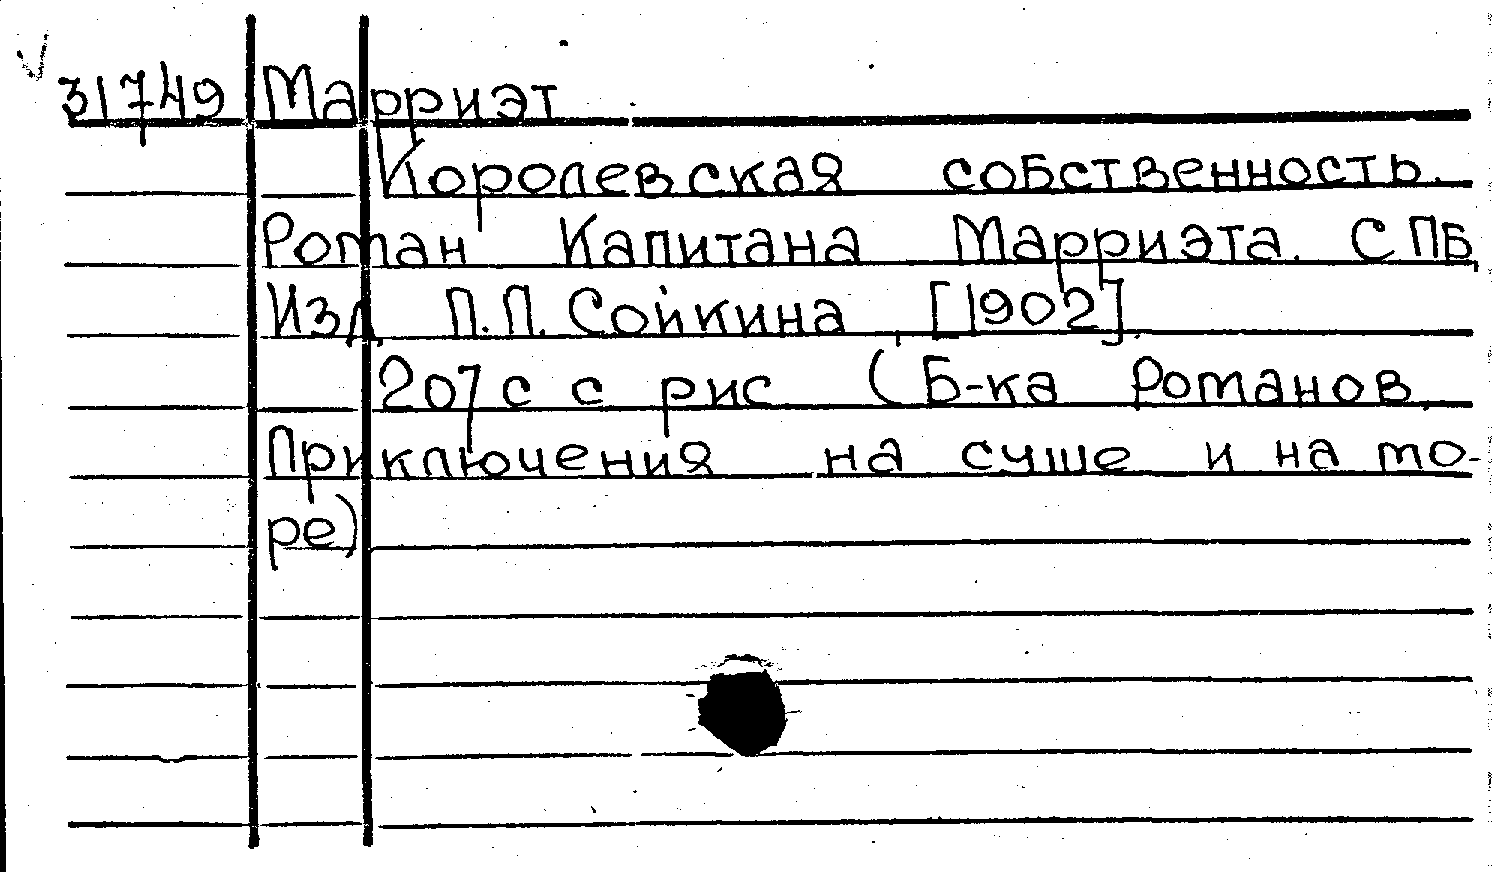 31749 Марриэт
Королевская собственность.
Роман Капитана Марриэта. СПБ,
Изд. П.П. Сойкина, [1902].
207 с с рис (Б-ка Романов.
Приключения на суше и на мо-
ре)